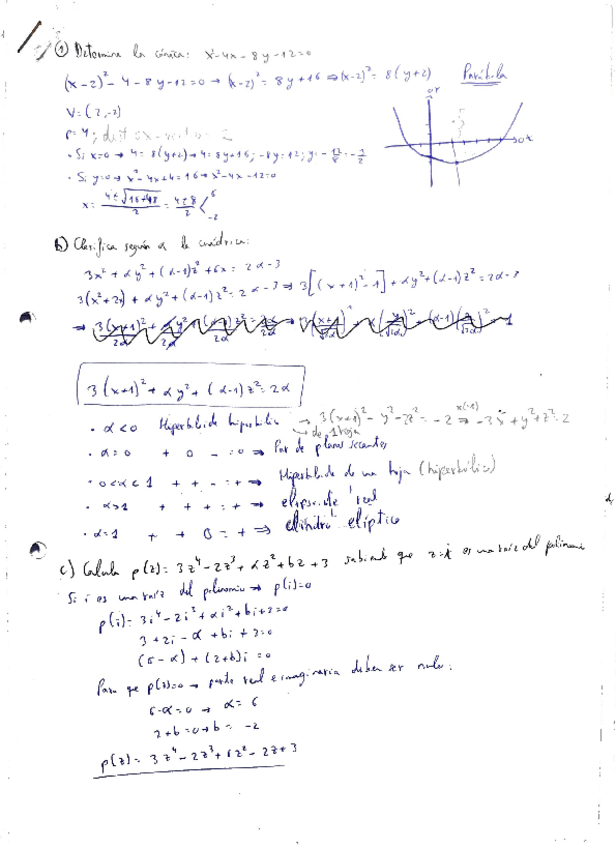 ① Determine la cónica: x²-4x-8y-12=0
(x-2)²-4-8y-12=0 → (x-2)²=8y+16 ⇒ (x-2)²=8(y+2) Parábola
V=(2,-2)
• Si x=0 → 4=8(y+2) → 4=8y+16; -8y=12; y=-12/8=-3/2
• Si y=0 → x²-4x+4=16 → x²-4x-12=0
x = (4±√(16+48))/2 = (4±8)/2 < 6 -2
OX
b) Clasifica según α la cuádrica:
3x²+αy²+(α-1)z²+6x=2α-3
3(x²+2x)+αy²+(α-1)z²=2α-3 ⇒ 3[(x+1)²-1]+αy²+(α-1)z²=2α-3
3(x+1)²+αy²+(α-1)z²=2α
• α<0 Hiperboloide hiperbólico → 3(x+1)²-y²-2z²=-2 ⇒ x(-1) -3x²+y²+z²=2
de 1 hoja
• α=0 + 0 - =0 ⇒ Par de planos secantes
• 0<α<1 + + - =+ ⇒ Hiperboloide de una hoja (hiperbólico)
• α>1 + + + =+ ⇒ elipsoide real
• α=1 + + 0 =+ ⇒ cilindro elíptico
c) Calcula p(z)=3z⁴-2z³+αz²+bz+3 sabiendo que z=i es una raíz del polinomio
Si i es una raíz del polinomio → p(i)=0
p(i)=3i⁴-2i³+αi²+bi+3=0
3+2i-α+bi+3=0
(6-α)+(2+b)i=0
Para que p(i)=0 → parte real e imaginaria deben ser nulas:
6-α=0 → α=6
2+b=0 → b=-2
p(z)=3z⁴-2z³+6z²-2z+3